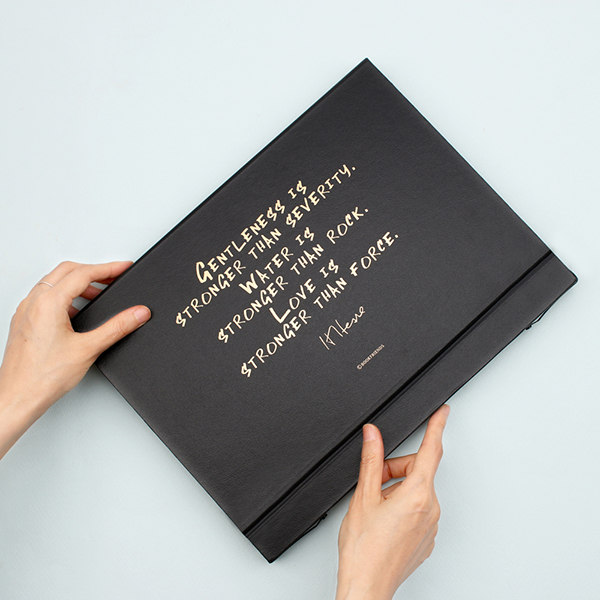 Gentleness is
stronger than severity.
Water is
stronger than rock.
Love is
stronger than force.
HHesse
©BOOKFRIENDS